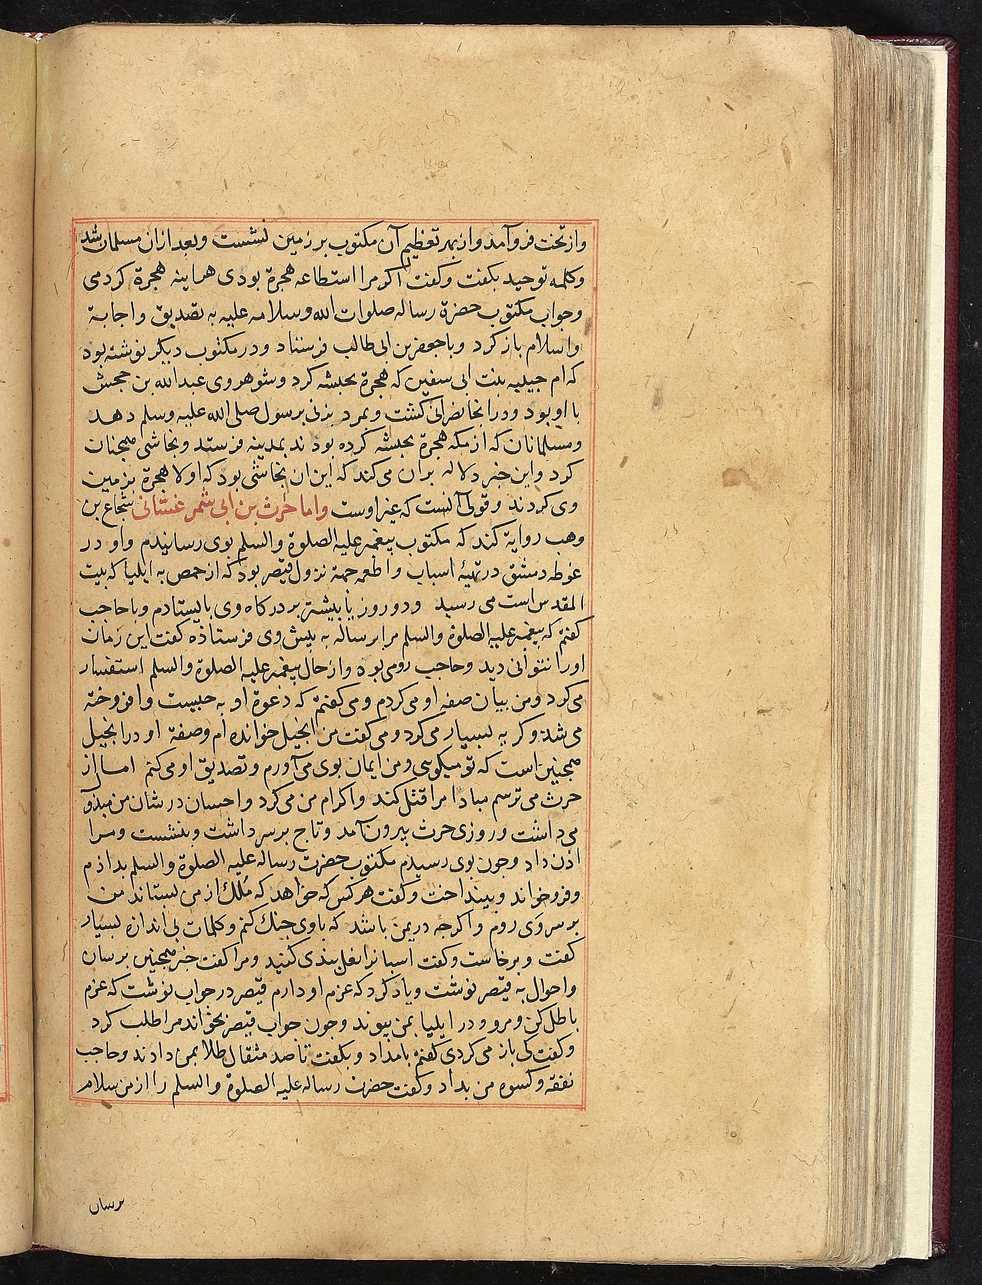 واز تخت فروآمد واز بهر تعظیم آن مکتوب بر زمین نشست وبعد ازان مسلمان شد
وکلمه توحید بکفت وکفت اکر مرا استطاعه هجرة بودی هراینه هجرة کردمی
وجواب مکتوب حضرة رساله صلوات الله وسلامه علیه به تصدیق واجابة
واسلام باز کرد وبا جعفر بن ابی طالب فرستاد ودر مکتوب دیکر نوشته بود
که ام حبیبه بنت ابی سفین که هجرة بحبشه کرد وشوهر وی عبد الله بن جحش
با او بود ودر انجا نصرانی کشت وبمرد بزنی برسول صلی الله علیه وسلم دهد
ومسلمانان که از مکه هجرة بحبشه کرده بودند بمدینه فرستد ونجاشی همچنان
کرد واین خبر دلاله بران می کند که این ان نجاشی بود که اولا هجرة بزمین
وی کردند وقولی آنست که غیر اوست واما حرث بن ابی شمر غسانی شجاع بن
وهب روایة کند که مکتوب پیغمبر علیه الصلوة والسلم بوی رسانیدم واو در
غوطه دمشق در تهیۀ اسباب واطعمه جهة نزول قیصر بود که از حمص به ایلیا که بیت
المقدس است می رسید ودو روز یا بیشتر بر درکاه وی بایستادم وبا حاجب
کفتم که پیغمبر علیه الصلوة والسلم مرا برساله به پیش وی فرستاده کفت این زمان
اورا نتوانی دید وحاجب رومی بود واز حال پیغمبر علیه الصلوة والسلم استفسار
می کرد ومن بیان صفه او می کردم ومی کفتم که دعوة او به چیست وافروخته
می شد وکریه بسیار می کرد ومی کفت من انجیل خوانده ام وصفة او در انجیل
همچنین است که تو میکویی ومن ایمان بوی می آورم وتصدیق او می کنم اما از
حرث می ترسم مبادا مرا قتل کند واکرام من می کرد واحسان در شان من مبذو
می داشت وروزی حرث بیرون آمد وتاج بر سر داشت وبنشست ومرا
اذن داد وچون بوی رسیدم مکتوب حضرت رساله علیه الصلوة والسلم بدادم
وفروخواند وبینداخت وکفت هر کس که خواهد که مُلک از من بستاند من
بر سر وی روم واکرچه در یمن باشد که با وی جنک کنم وکلمات بی اندازه بسیار
کفت وبرخاست وکفت اسبانرا نعل بندی کنید ومرا کفت خبر همچنین برسان
واحوال به قیصر نوشت ویاد کرد که عزم او دارم قیصر در جواب نوشت که عزم
باطل کن ومرو ودر ایلیا بمن پیوند وچون جواب قیصر بخواند مرا طلب کرد
وکفت کی باز می کردی کفتم بامداد وبکفت تا صد مثقال طلا بمن دادند وحاجب
نفقه وکسوه من بداد وکفت حضرت رساله علیه الصلوة والسلم را از من سلام
برسان